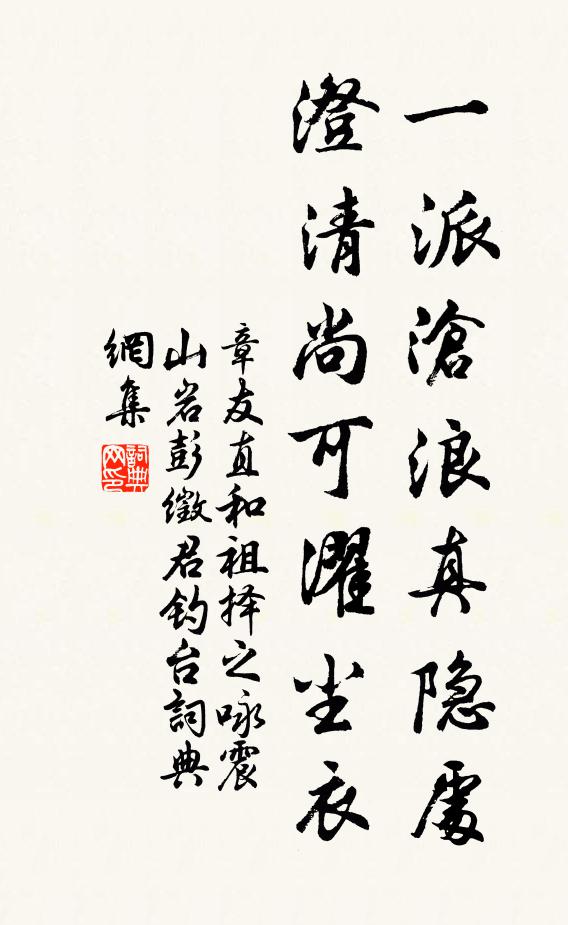 一派滄浪真隐處
澄清尚可濯尘衣
章友直和祖择之咏震
山岩彭徵君钓台詞典
網集
詞典
网印